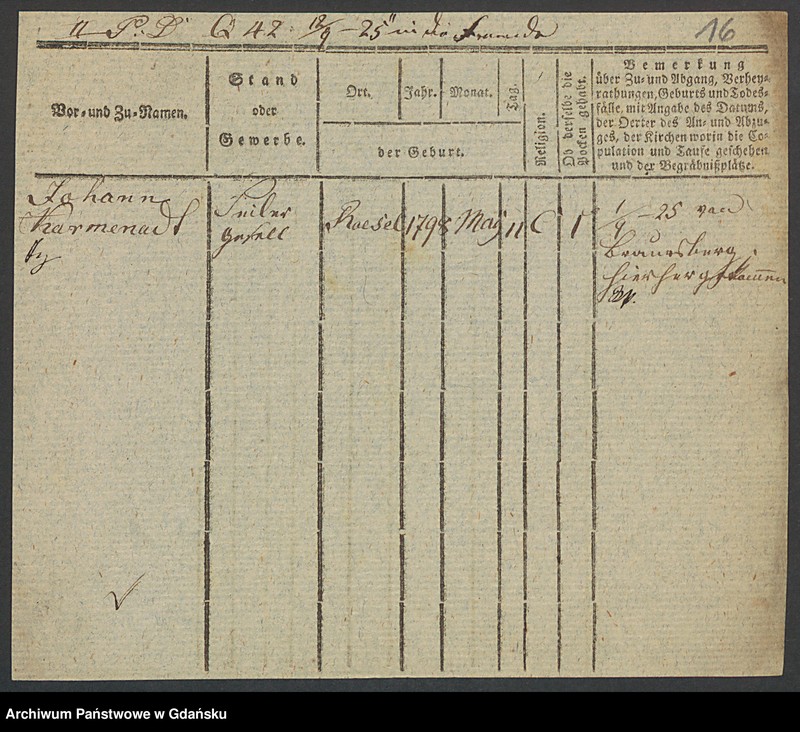 Q 42 12/9 - 25 in die Fremde
16
Vor- und Zu-Namen.
Stand
oder
Gewerbe.
Ort.
Jahr.
Monat.
Tag.
der Geburt.
Religion.
Ob derselbe die
Pocken gehabt.
Bemerkung
über Zu- und Abgang, Verhey-
rathungen, Geburts und Todes-
fälle, mit Angabe des Datums,
der Oerter des An- und Abzu-
ges, der Kirchen worin die Co-
pulation und Taufe geschehen
und der Begräbnißplätze.
Johann
Karmenadt
Seiler
Gesell
Roesel
1798
May
11
C
1
1/9 - 25 von
Braunsberg
hierher gekommen
Archiwum Państwowe w Gdańsku